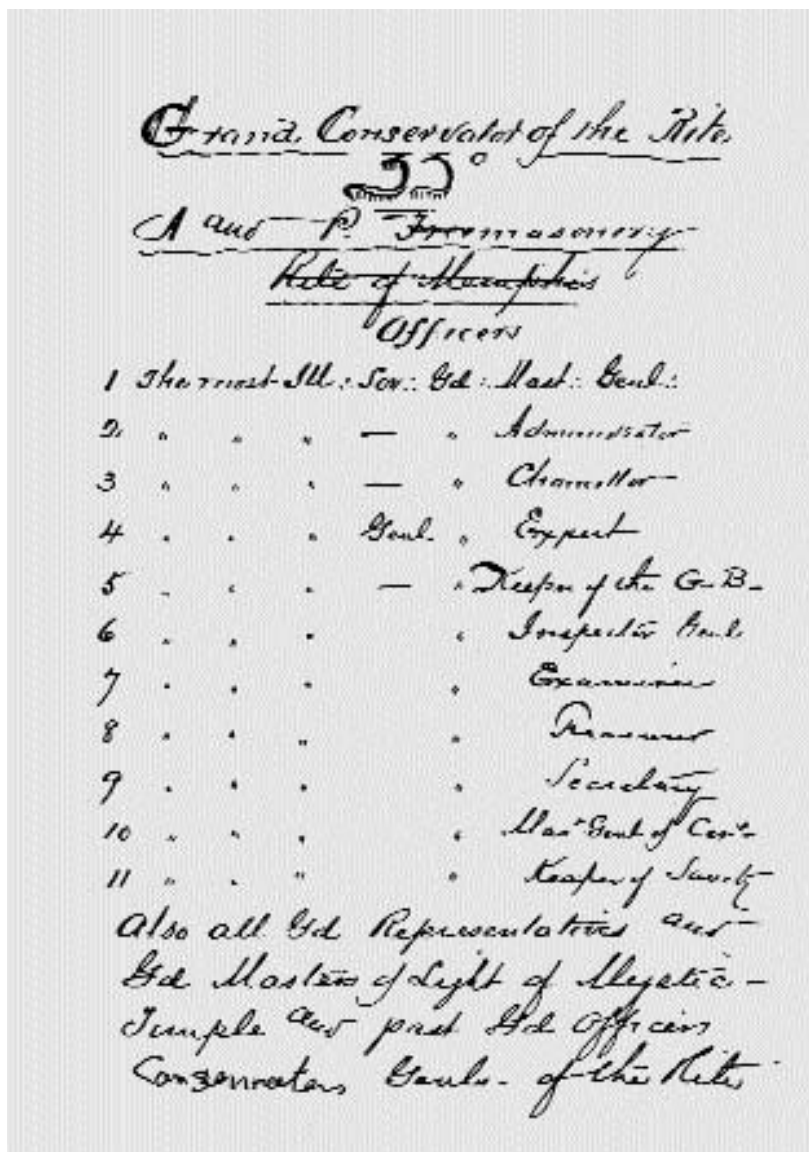 Grand Conservator of the Rite
A and P. Freemasonery
Rite of Memphis
Officers
1 The most Ill∴ Sov∴ Gd∴ Mast∴ Genl∴
2 " " " — " Administrator
3 " " " — " Chancellor
4 " " " Genl. " Expert
5 " " " — " Keeper of the G-B-
6 " " " " Inspector Genl
7 " " " " Examiner
8 " " " " Treasurer
9 " " " " Secretary
10 " " " " Genl of
11 " " " " Keeper of
Also all Gd Representatives and
Gd Masters of Light of Mystic-
Temple and past Gd Officers
Conservators Genls- of the Rite